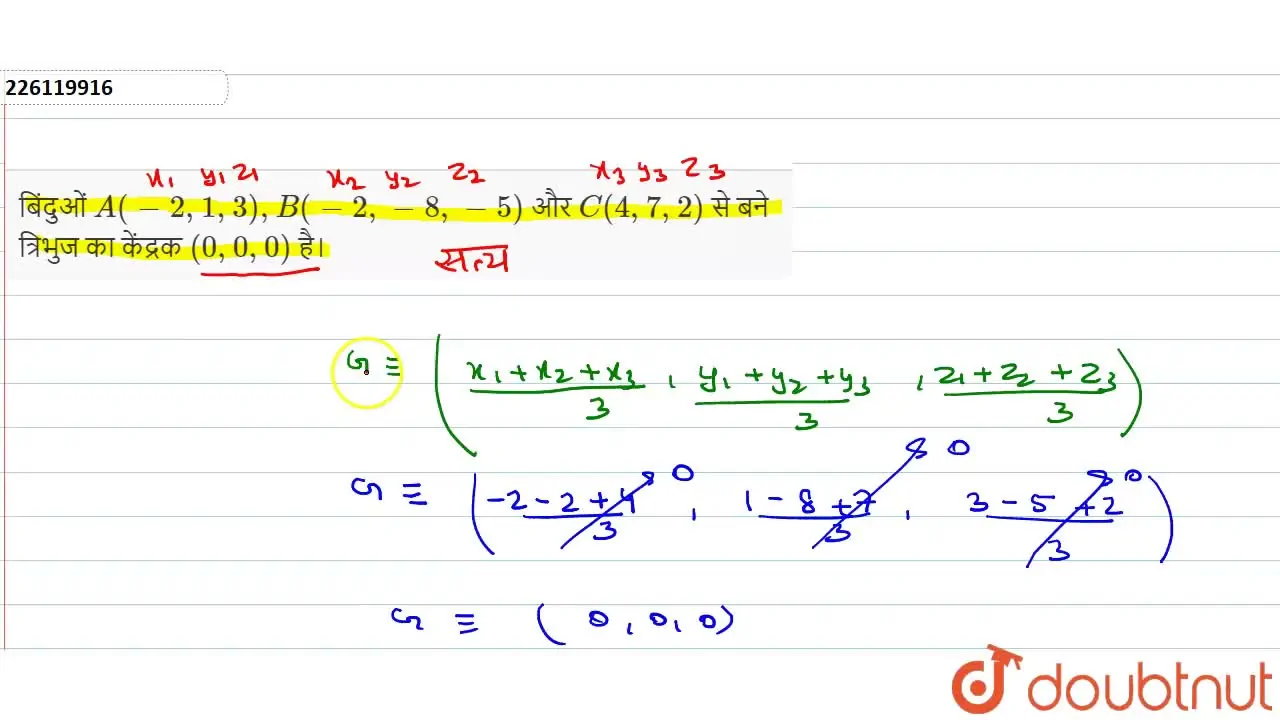 226119916
x₁ y₁ z₁ x₂ y₂ z₂ x₃ y₃ z₃
बिंदुओं A(−2, 1, 3), B(−2, −8, −5) और C(4, 7, 2) से बने
त्रिभुज का केंद्रक (0, 0, 0) है।
सत्य
G ≡ ( (x₁+x₂+x₃)/3 , (y₁+y₂+y₃)/3 , (z₁+z₂+z₃)/3 )
G ≡ ( (-2-2+4)/3 0 , (1-8+7)/3 0 , (3-5+2)/3 0 )
G ≡ (0, 0, 0)
doubtnut